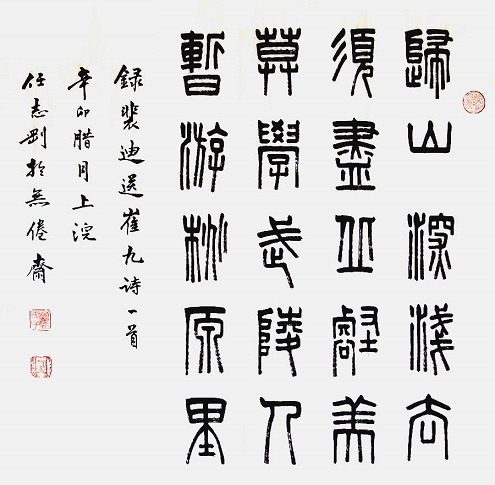 歸山深淺去
須盡丘壑美
莫學武陵人
暫游桃原里
錄裴迪送崔九詩一首
辛卯腊月上浣
任志剛於無倦齋